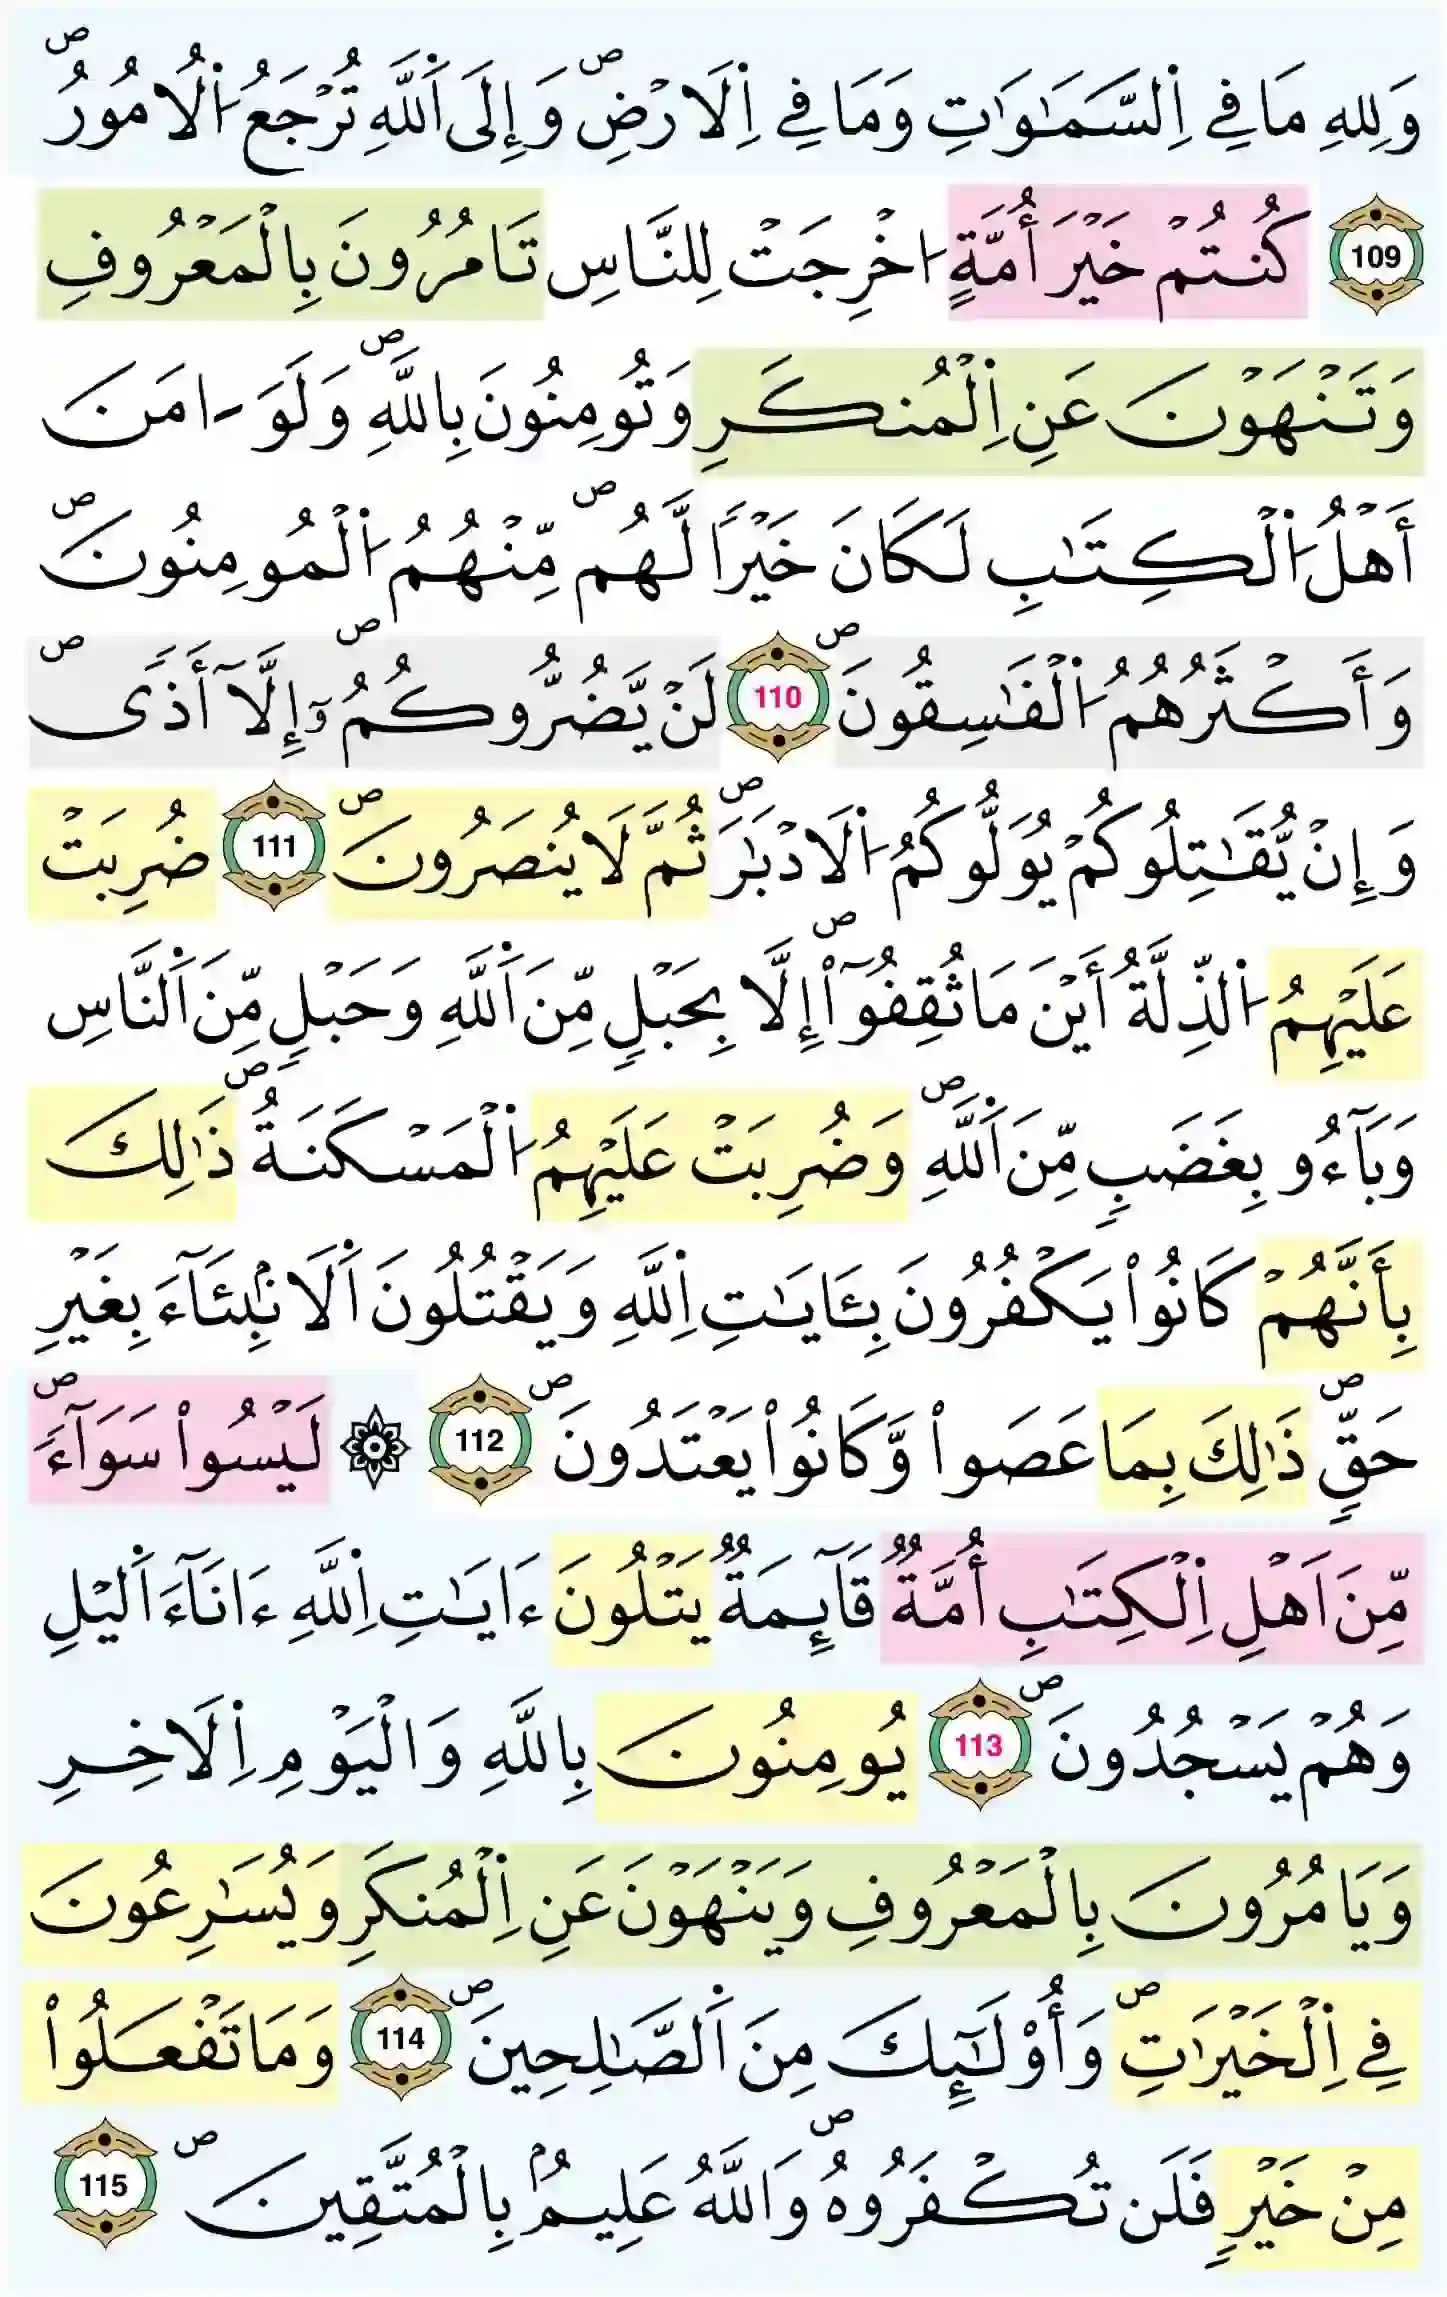 وَلِلهِ مَا فِے اِ۬لسَّمَٰوَٰتِ وَمَا فِے اِ۬لَارْضِۖ وَإِلَى اَ۬للَّهِ تُرْجَعُ اُ۬لُامُورُۖ
109 كُنتُمْ خَيْرَ أُمَّةٍ ا۟خْرِجَتْ لِلنَّاسِ تَامُرُونَ بِالْمَعْرُوفِ
وَتَنْهَوْنَ عَنِ اِ۬لْمُنكَرِ وَتُومِنُونَ بِاللَّهِۖ وَلَوَ اٰمَنَ
أَهْلُ اُ۬لْكِتَٰبِ لَكَانَ خَيْراً لَّهُمۖ مِّنْهُمُ اُ۬لْمُومِنُونَۖ
وَأَكْثَرُهُمُ اُ۬لْفَٰسِقُونَۖ 110 لَنْ يَّضُرُّوكُمُۥٓۖ إِلَّآ أَذىًۖ
وَإِنْ يُّقَٰتِلُوكُمْ يُوَلُّوكُمُ اُ۬لَادْبَٰرَۖ ثُمَّ لَا يُنصَرُونَۖ 111 ضُرِبَتْ
عَلَيْهِمُ اُ۬لذِّلَّةُ أَيْنَ مَا ثُقِفُوٓاْۖ إِلَّا بِحَبْلٍ مِّنَ اَ۬للَّهِ وَحَبْلٍ مِّنَ اَ۬لنَّاسِ
وَبَآءُو بِغَضَبٍ مِّنَ اَ۬للَّهِۖ وَضُرِبَتْ عَلَيْهِمُ اُ۬لْمَسْكَنَةُۖ ذَٰلِكَ
بِأَنَّهُمْ كَانُواْ يَكْفُرُونَ بِـَٔايَٰتِ اِ۬للَّهِ وَيَقْتُلُونَ اَ۬لَانۢبِئَآءَ بِغَيْرِ
حَقٍّۖ ذَٰلِكَ بِمَا عَصَواْ وَّكَانُواْ يَعْتَدُونَۖ 112 ۞ لَيْسُواْ سَوَآءًۖ
مِّنَ اَهْلِ اِ۬لْكِتَٰبِ أُمَّةٌ قَآئِمَةٌ يَتْلُونَ ءَايَٰتِ اِ۬للَّهِ ءَانَآءَ اَ۬ليْلِ
وَهُمْ يَسْجُدُونَۖ 113 يُومِنُونَ بِاللَّهِ وَالْيَوْمِ اِ۬لَاخِرِ
وَيَامُرُونَ بِالْمَعْرُوفِ وَيَنْهَوْنَ عَنِ اِ۬لْمُنكَرِ وَيُسَٰرِعُونَ
فِے اِ۬لْخَيْرَٰتِۖ وَأُوْلَٰٓئِكَ مِنَ اَ۬لصَّٰلِحِينَۖ 114 وَمَا تَفْعَلُواْ
مِنْ خَيْرٍ فَلَن تُكْفَرُوهُۖ وَاللَّهُ عَلِيمُۢ بِالْمُتَّقِينَۖ 115